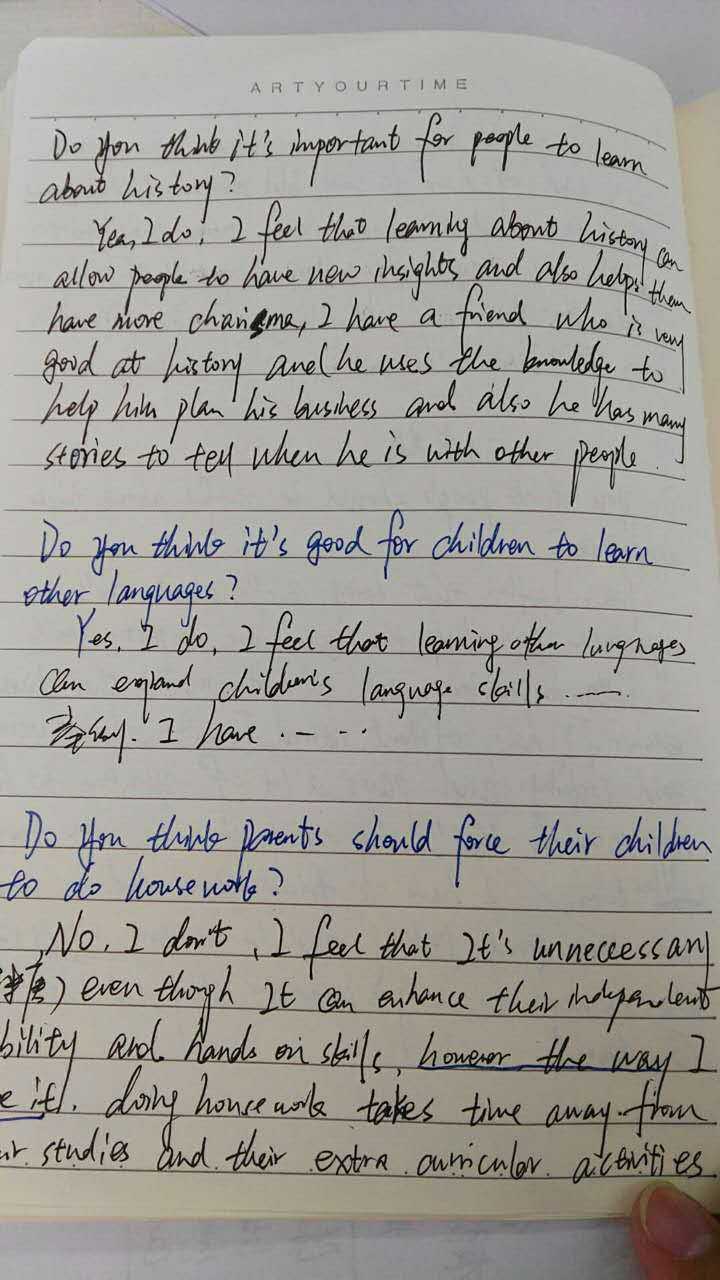 ARTYOURTIME
Do you think it's important for people to learn
about history?
Yes, I do, I feel that learning about history can
allow people to have new insights and also helps them
have more charisma, I have a friend who is very
good at history and he uses the knowledge to
help him plan his business and also he has many
stories to tell when he is with other people.
Do you think it's good for children to learn
other languages?
Yes, I do, I feel that learning other languages
can expand children's language skills .——.
I have .— . . .
Do you think parents should force their children
to do housework?
No, I don't, I feel that It's unneccessary
) even though It can enhance their independent
bility and hands on skills, however the way I
e it, doing housework takes time away from
ir studies and their extra curricular activities